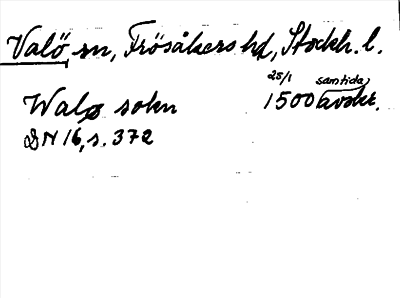 Valö sn, Frösåkers hd, Stockh. l.
Walø sokn 25/1 1500 samtida avskr.
DN 16, s. 372